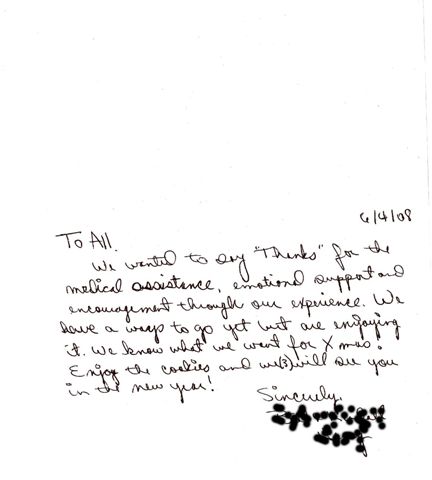 6/4/08
To All.
We wanted to say "Thanks" for the
medical assistance, emotional support and
encouragement through our experience. We
have a ways to go yet but are enjoying
it. We know what we want for X mas!
Enjoy the cookies and we(3)will see you
in the new year!
Sincerely,